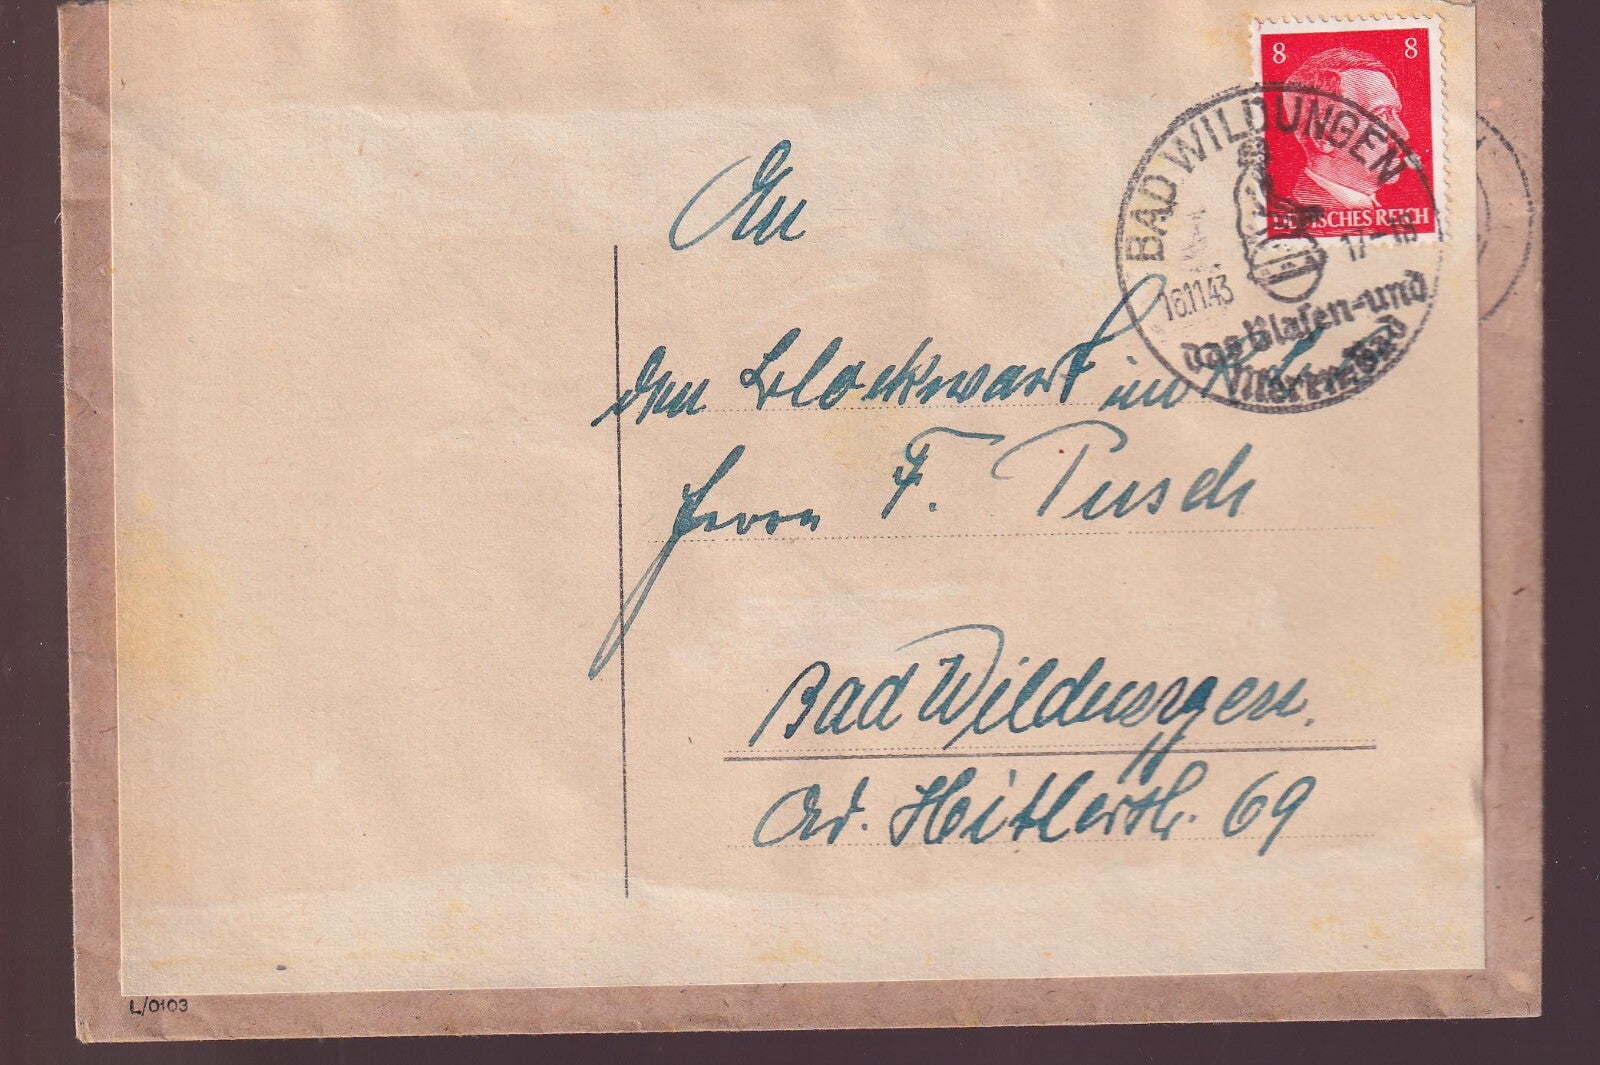 8 8
DEUTSCHES REICH
BAD WILDUNGEN
16.11.43 17-18
das Blasen-und
Nierenbad
An
den Blockwart im
Herrn F. Pusch
Bad Wildungen.
Ad. Hitlerstr. 69
L/0103